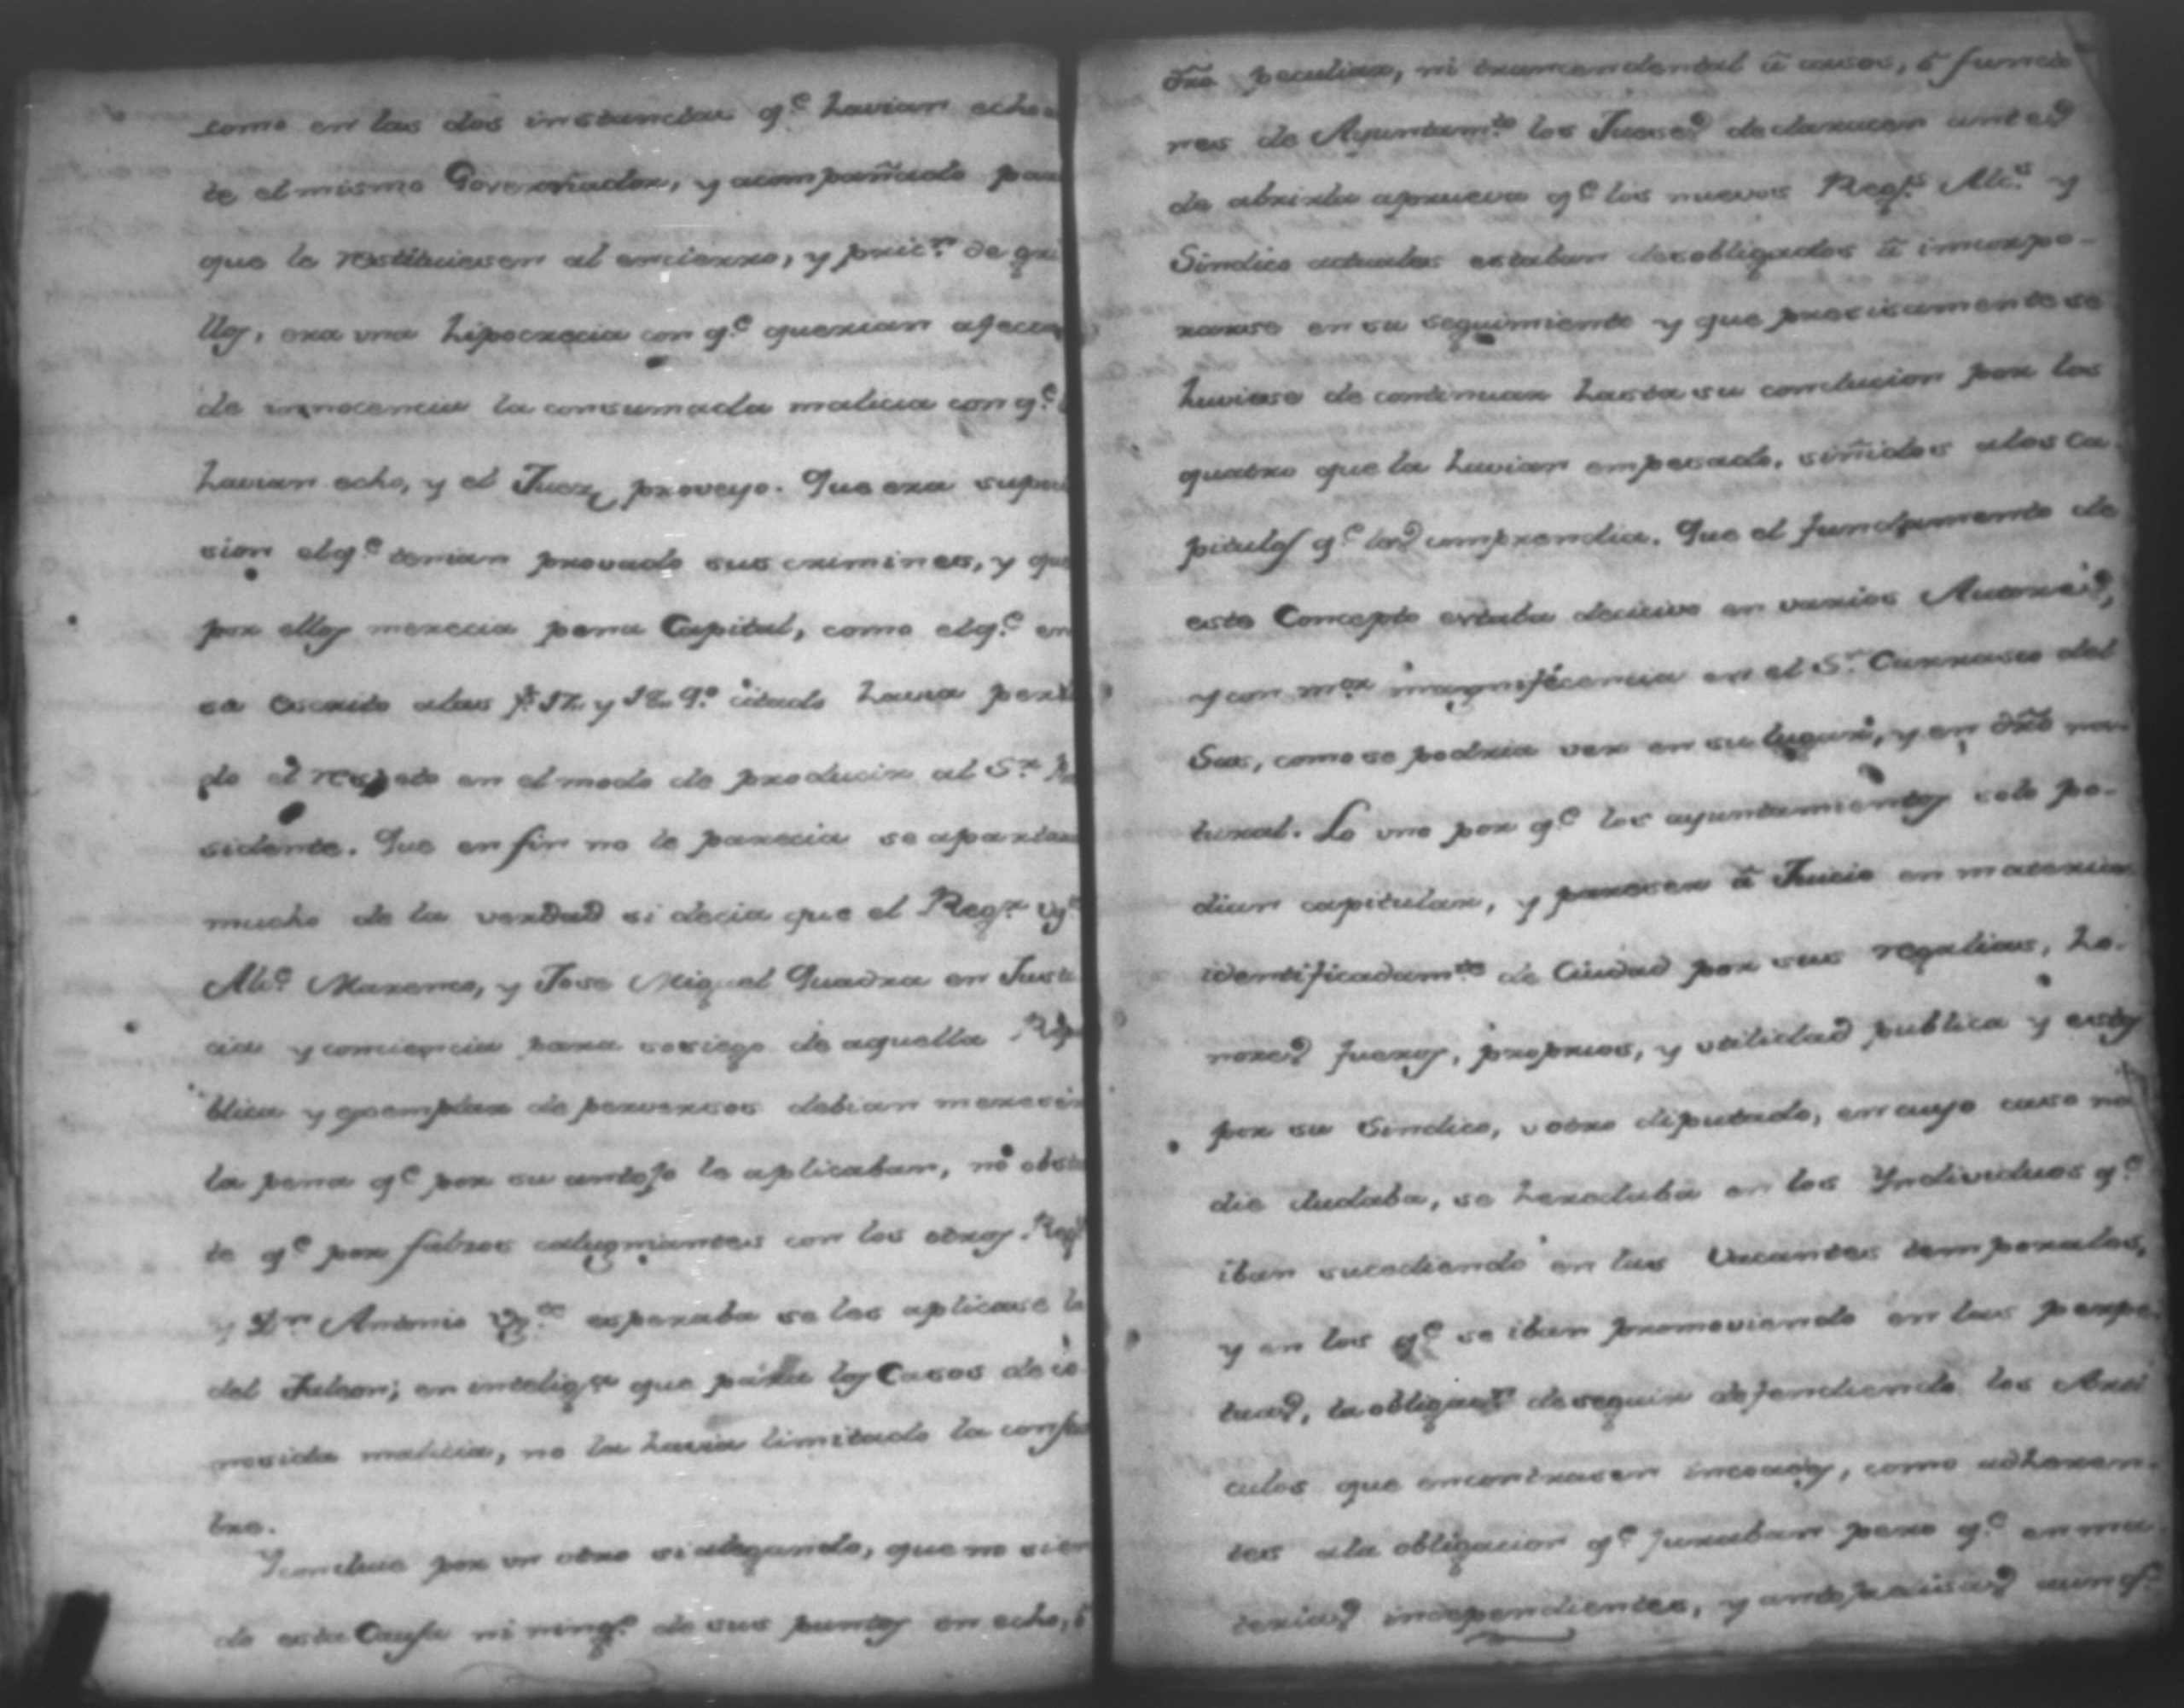 como en las dos instancias q.e havian echo a
te el mismo Governador, y acompañado pa
que le restituiesen al encierro, y pric.n de gri
llos, era una hipocrecia con q.e querian afec
de innocencia la consumada malicia con q.e
havian echo, y el Juez proveyo. Que era
sion el q.e tenian provado sus crimines, y que
por ellos merecia pena Capital, como el q.e en
se escrito alas f.s 17. y 18. q.o citado havia perdi
do el respeto en el modo de producir al S.r
sidente. Que en fin no le parecia se apartava
mucho de la verdad si decia que el Reg.r
Alc.e Marenco, y Jose Miguel Quadra en Justi
cia y conciencia para sosiego de aquella Repu
blica y exemplar de perversos debian merecer
la pena q.e por su antojo le aplicaban, no obstan
te q.e por falsos calumniantes con los otros Reg.s
y D.n Antonio esperaba se les aplicase la
del Talion; en intelig.a que para los Casos de co
nosida malicia, no la havia limitado la costum
bre.
Y conclue por un otro si alegando, que no sien
do esta Causa ni ning.o de sus puntos en echo, ô
dro peculiar, ni trancendental â casos, ô funcio
nes de Ayuntam.to los Jueses declarasen antes
de abrirla aprueva q.e los nuevos Reg.s Alc.s y
Sindico actuales estaban desobligados â incorpo-
rarse en su seguimiento y que presisamente se
huviese de continuar hasta su conclucion por los
quatro que la havian empesado, siñidos alos ca-
pitulos q.e los comprendia. Que el fundamento de
este Concepto estaba decisivo en varios Autores,
y con mor magnificencia en el S.r Carrasco del
Sas, como se podria ver en su lugar, y en dro na-
tural. Lo uno por q.e los ayuntamientos solo po-
dian capitular, y pareser â Juicio en materias
identificadam.te de Ciudad por sus regalias, ho-
nores fueros, proprios, y utilidad publica y esto
por su Sindico, u otro diputado, en cuyo caso na
die dudaba, se heredaba en los Yndividuos q.e
iban sucediendo en las Vacantes temporales,
y en los q.e se iban promoviendo en las perpe-
tuas, la obligac.n de seguir defendiendo los Arti
culos que encontrasen incoados, como adheren-
tes ala obligacion q.e juraban pero q.e en ma
terias independientes, y antojadisas aunq.e